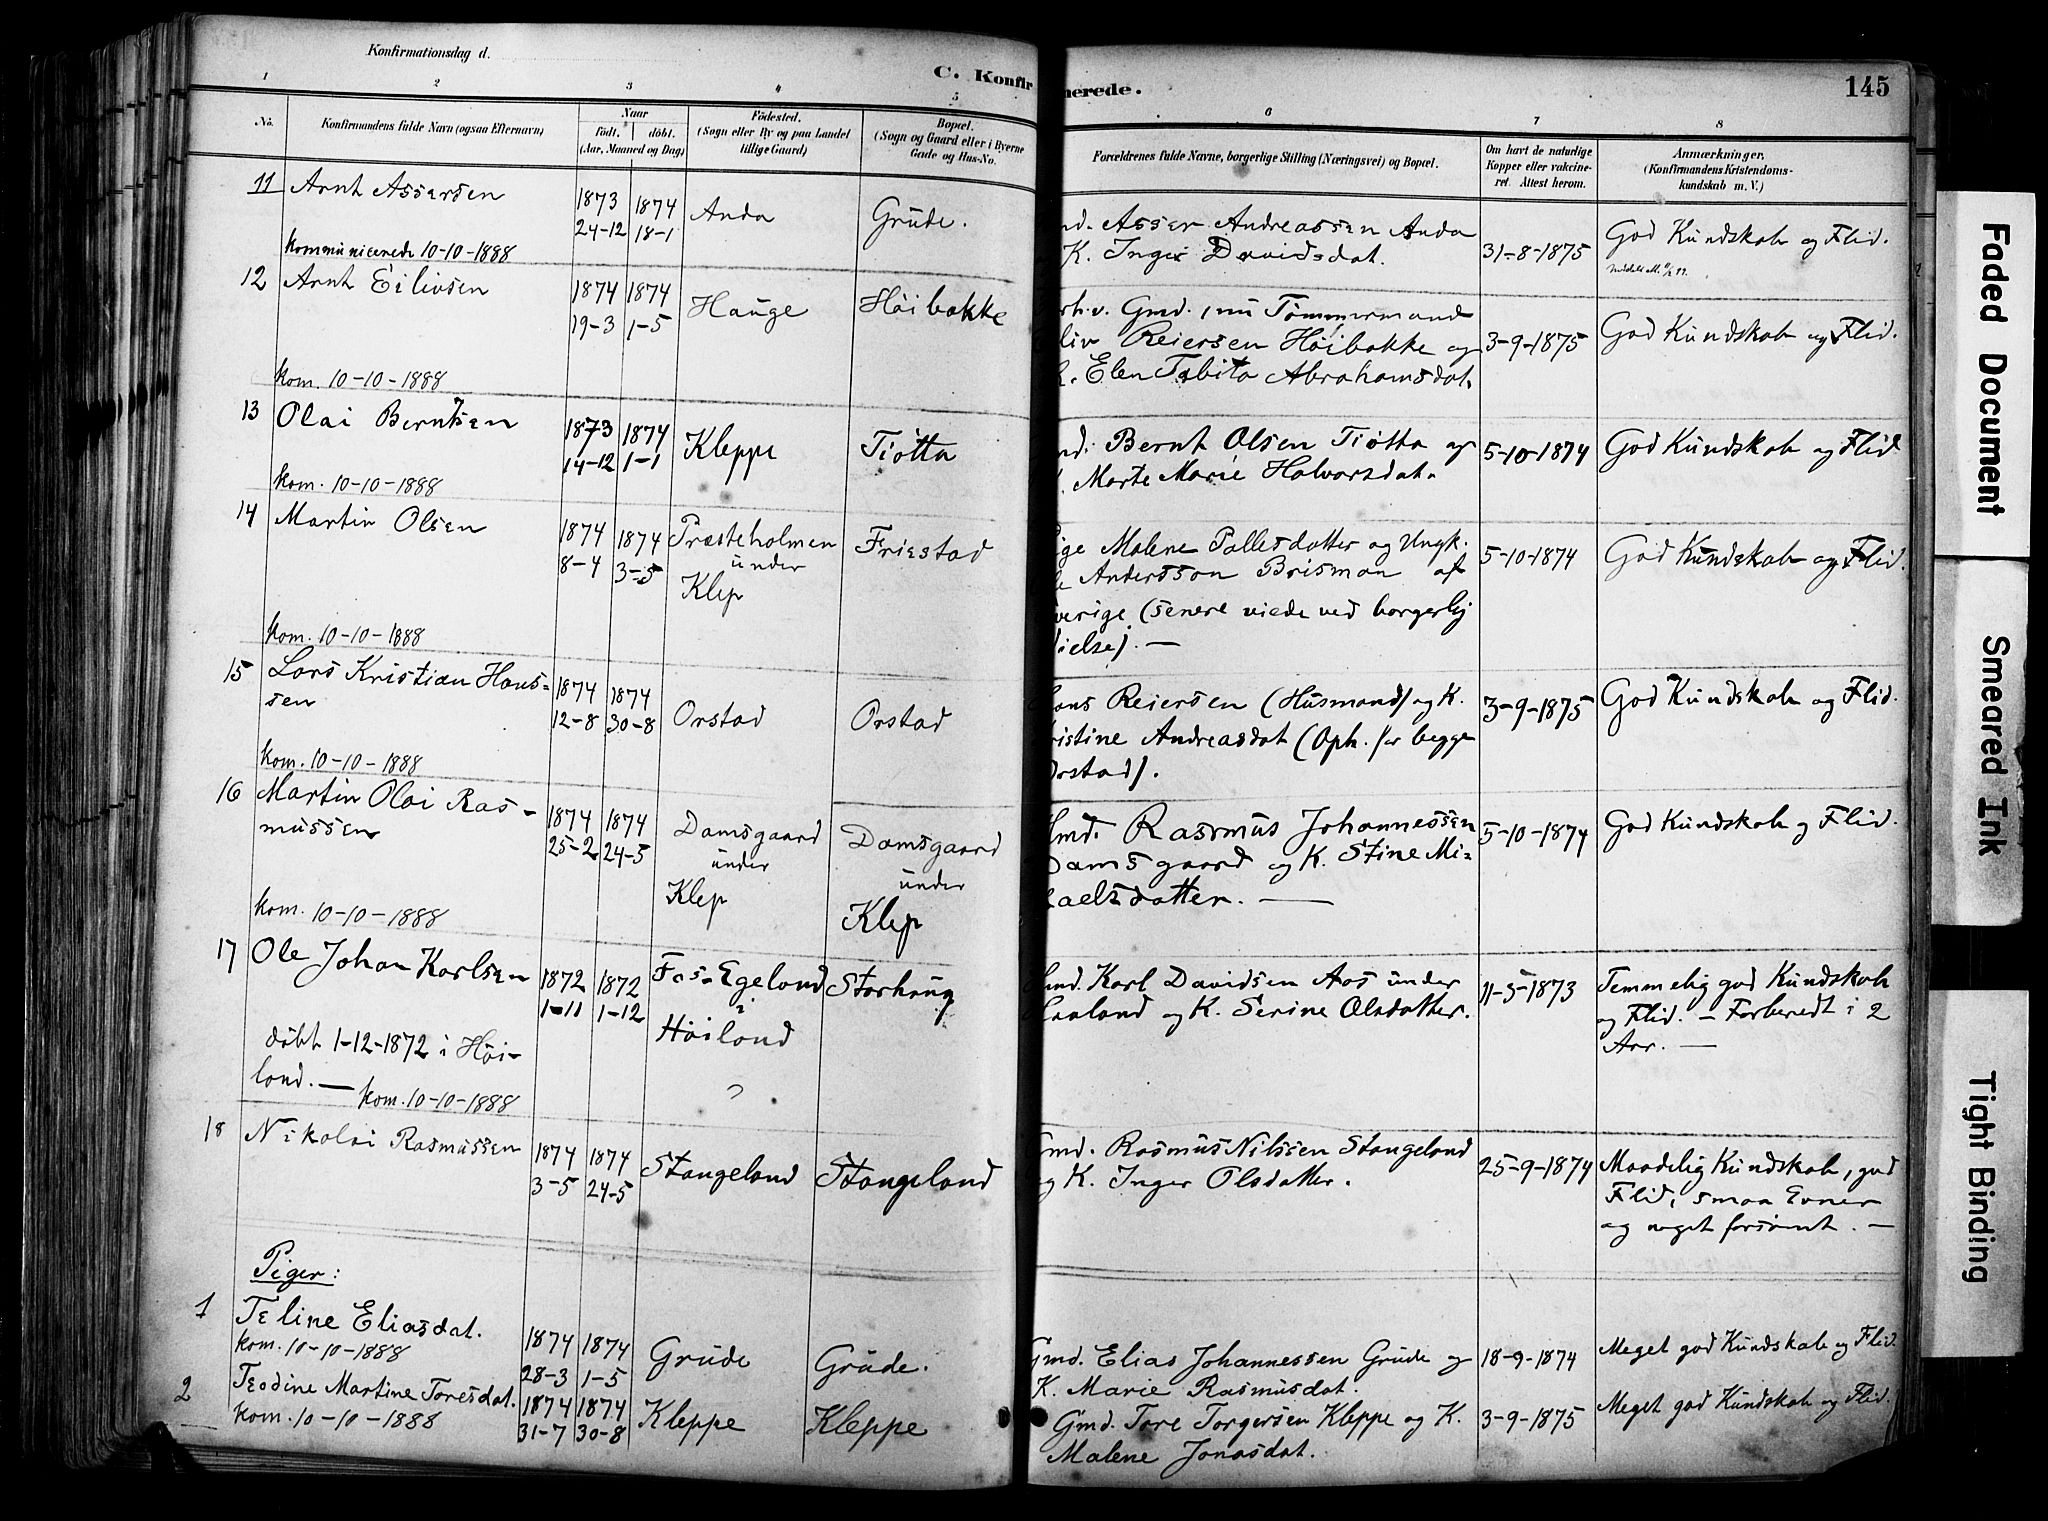 Konfirmationsdag d.
C. Konfir
merede.
145
1 2 3 4 5 6 7 8
No.
Konfirmandens fulde Navn (ogsaa Efternavn)
Naar
født. døbt.
(Aar, Maaned og Dag)
Fødested.
(Sogn eller By og paa Landet
tillige Gaard)
Bopæl.
(Sogn og Gaard eller i Byerne
Gade og Hus-No.
Forældrenes fulde Navne, borgerlige Stilling (Næringsvei) og Bopæl.
Om havt de naturlige
Kopper eller vakcine-
ret. Attest herom.
Anmærkninger.
(Konfirmandens Kristendoms-
kundskab m. V.)
11 Arnt Assersen
1873 24-12
1874 18-1
Anda
Grude.
kommunicerede 10-10-1888
md. Asser Andreassen Anda
K. Inger Davidsdat.
31-8-1875
God Kundskab og Flid.
12 Arnt Eilivsen
1874 19-3
1874 1-5
Hauge
Höibakke
kom. 10-10-1888
rh.v. Gmd., nu Tömmermand
liv Reiersen Höibakke og
K. Elen Tabita Abrahamsdat.
3-9-1875
God Kundskab og Flid.
13 Olai Berntsen
1873 14-12
1874 1-1
Kleppe
Tiötta
kom. 10-10-1888
md. Bernt Olsen Tiötta og
Marte Marie Halvorsdat.
5-10-1874
God Kundskab og Flid
14 Martin Olsen
1874 8-4
1874 3-5
Præsteholmen
under
Klep
Friestad
kom. 10-10-1888
ige Malene Pallesdatter og Ungk.
le Andersson Brisman af
verige (senere viede ved borgerlig
ielse). —
5-10-1874
God Kundskab og Flid.
15 Lars Kristian Hans-
sen
1874 12-8
1874 30-8
Orstad
Orstad
kom. 10-10-1888
Hans Reiersen (Husmand) og K.
ristine Andreasdat (Oph. for begge
Orstad).
3-9-1875
God Kundskab og Flid.
16 Martin Olai Ras-
mussen
1874 25-2
1874 24-5
Damsgaard
under
Klep
Damsgaard
under
Klep
kom. 10-10-1888
md. Rasmus Johannessen
Damsgaard og K. Stine Mi-
kaelsdatter. —
5-10-1874
God Kundskab og Flid.
17 Ole Johan Karlsen
1872 1-11
1872 1-12
Fos-Egeland
i
Höiland
Storhaug
döbt 1-12-1872 i Höi-
land. — kom. 10-10-1888
md. Karl Davidsen Aas under
aaland og K. Serine Olsdatter.
11-3-1873
Temmelig god Kundskab
og Flid. — Forberedt i 2
Aar. —
18 Nikolai Rasmussen
1874 3-5
1874 24-5
Stangeland
Stangeland
Gmd. Rasmus Nilssen Stangeland
og K. Inger Olsdatter.
25-9-1874
Maadelig Kundskab, god
Flid, smaa Evner
og noget forsömt. —
Piger:
1 Teline Eliasdat.
1874 28-3
1874 1-5
Grude
Grude.
kom. 10-10-1888
Gmd. Elias Johannessen Grude og
K. Marie Rasmusdat.
18-9-1874
Meget god Kundskab og Flid.
2 Teodine Martine Toresdat.
1874 31-7
1874 30-8
Kleppe
Kleppe
kom. 10-10-1888
Gmd. Tore Torgersen Kleppe og K.
Malene Jonasdat.
3-9-1875
Meget god Kundskab og Flid.
Faded Document
Smeared Ink
Tight Binding